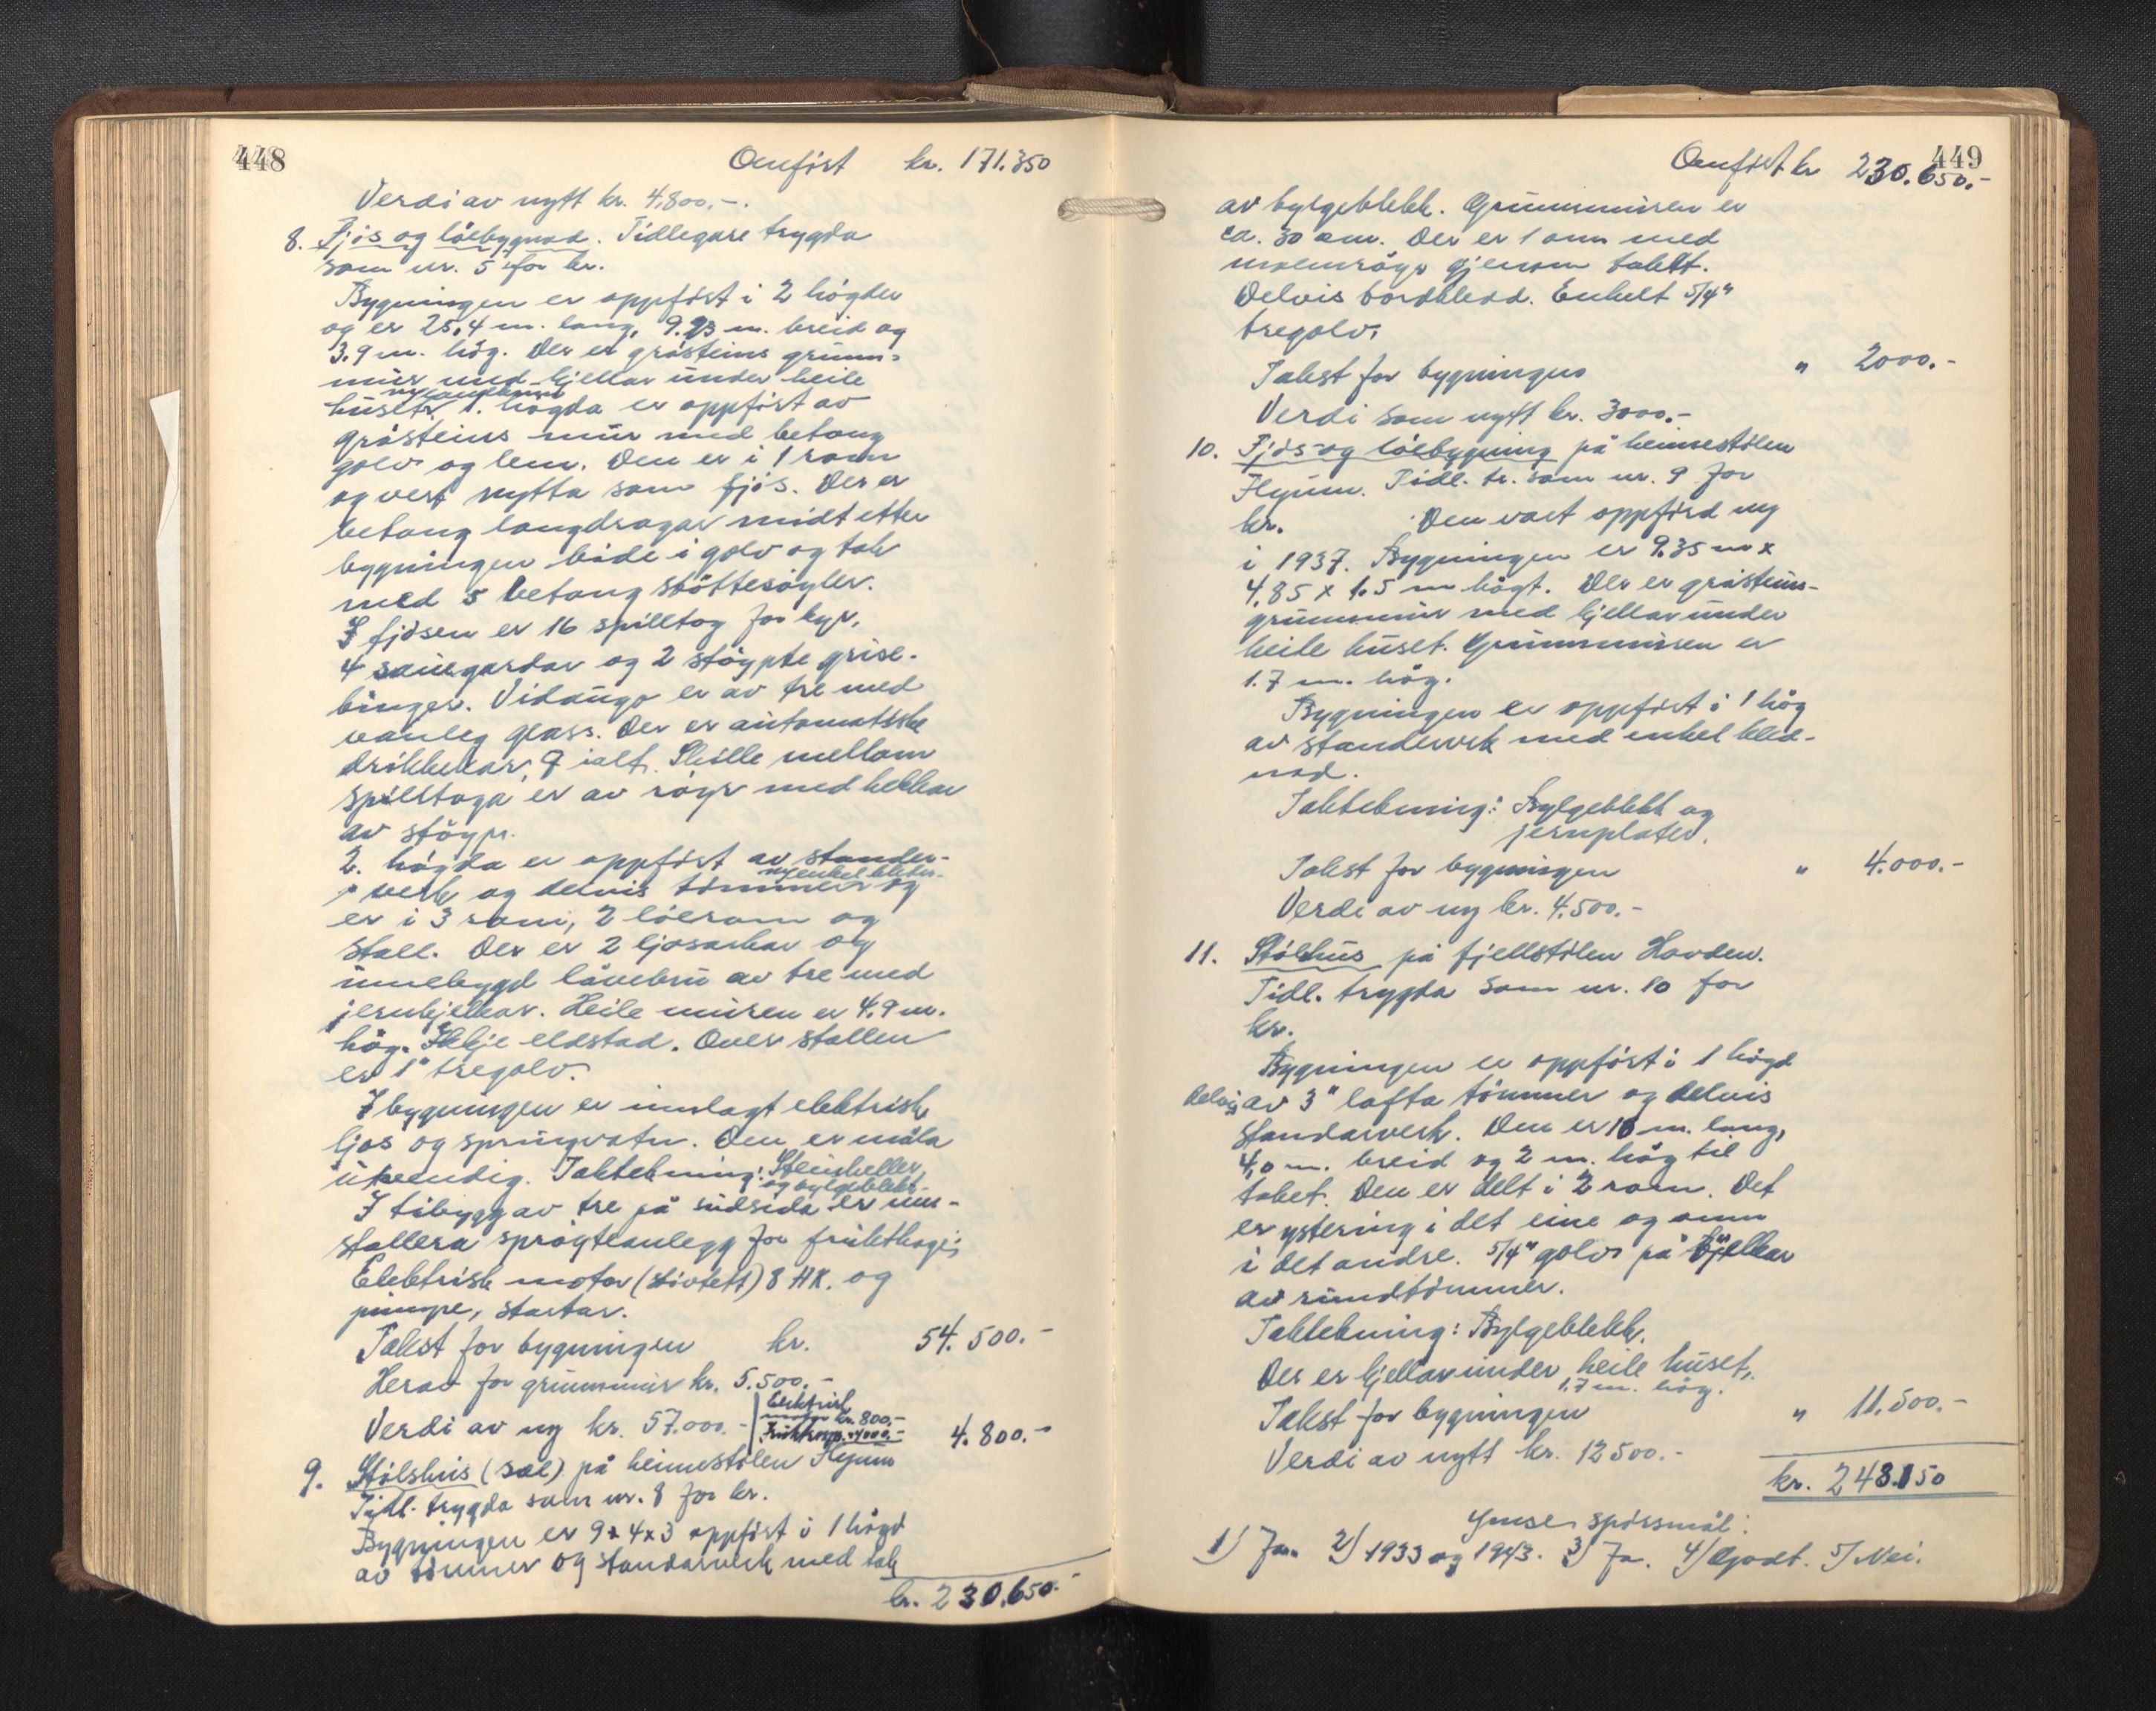 448
Omført kr. 171.350
Verdi av nytt kr. 4.800.-.
8. Fjøs og løebygnad. Tidlegare trygda
som nr. 5 for kr.
Bygningen er oppført i 2 høgder
og er 25,4 m. lang, 9.23 m. breid og
3.9 m. høg. Der er gråsteins grunn-
mur med kjellar under heile
huset. 1. høgda er oppført av
gråsteins mur med betong
golv og lem. Den er i 1 rom
og vert nytta som fjøs. Der er
betong langdragar midt etter
bygningen både i golv og tak
med 5 betong støttesøyler.
I fjøsen er 16 spilltog for kyr,
4 sauegardar og 2 støypte grise-
binger. Vidaugo er av tre med
vanleg glass. Der er automatiske
drikkekar, 9 ialt. Skille mellom
spilltoga er av røyr med hekkar
av støyp.
2. høgda er oppført av stander-
verk og delvis tømmer og
er i 3 rom, 2 løerom og
stall. Der er 2 ljosarkar og
innebygd låvebru av tre med
jernbjelkar. Heile muren er 4.9 m.
høg. Ikkje eldstad. Over stallen
er 1" tregolv.
I bygningen er innlagt elektrisk
ljos og springvatn. Den er måla
utvendig. Taktekning: Steinheller
og bylgeblekk.
I tilbygg av tre på sudsida er inn-
stallera sprøyteanlegg for frukthage;
Elektrisk motor (støvtett) 8 HK. og
pumpe, startar.
Takst for bygningen kr. 54.500.-
Herav for grunnmur kr. 5.500.-
Verdi av ny kr. 57.000.-
Elektrisk
motor kr. 800.-
4000.-
4.800.-
9. Stølshus (sel) på heimestølen Flyum
Tidl. trygda som nr. 8 for kr.
Bygningen er 9 x 4 x 3 oppført i 1 høgd
av tømmer og standarverk med tak
kr. 230.650.-
449
Omført kr 230.650.-
av bylgeblekk. Grunnmuren er
ca. 30 cm. Der er 1 omn med
gjenom taket.
Delvis bordkledd. Enkelt 5/4"
tregolv.
Takst for bygningen " 2000.-
Verdi som nytt kr. 3000.-
10. Fjøs- og løebygning på heimestølen
Flyum. Tidl. tr. som nr. 9 for
kr. Den vart oppførd ny
i 1937. Bygningen er 9.35 m x
4,85 x 1.5 m høgt. Der er gråsteins-
grunnmur med kjellar under
heile huset. Grunnmuren er
1.7 m. høg.
Bygningen er oppført i 1 høg
av standerverk med enkel kled-
nad.
Taktekning: Bylgeblekk og
jernplater.
Takst for bygningen " 4.000.-
Verdi av ny kr. 4.500.-
11. Stølshus på fjellstølen Hovden.
Tidl. trygda som nr. 10 for
kr.
Bygningen er oppført i 1 høgd
delvis av 3" lafta tømmer og delvis
standarverk. Den er 10 m. lang,
4,0 m. breid og 2 m. høg til
taket. Den er delt i 2 rom. Det
er ystering i det eine og omn
i det andre. 5/4" golv på bjelkar
av rundtømmer.
Taktekning: Bylgeblekk.
Der er kjellar under heile huset,
1,7 m. høg.
Takst for bygningen " 11.500.-
Verdi av nytt kr. 12500.-
kr. 248.150
Ymse spørsmål:
1) Ja. 2) 1933 og 1943. 3) Ja. 4) Godt. 5) Nei.